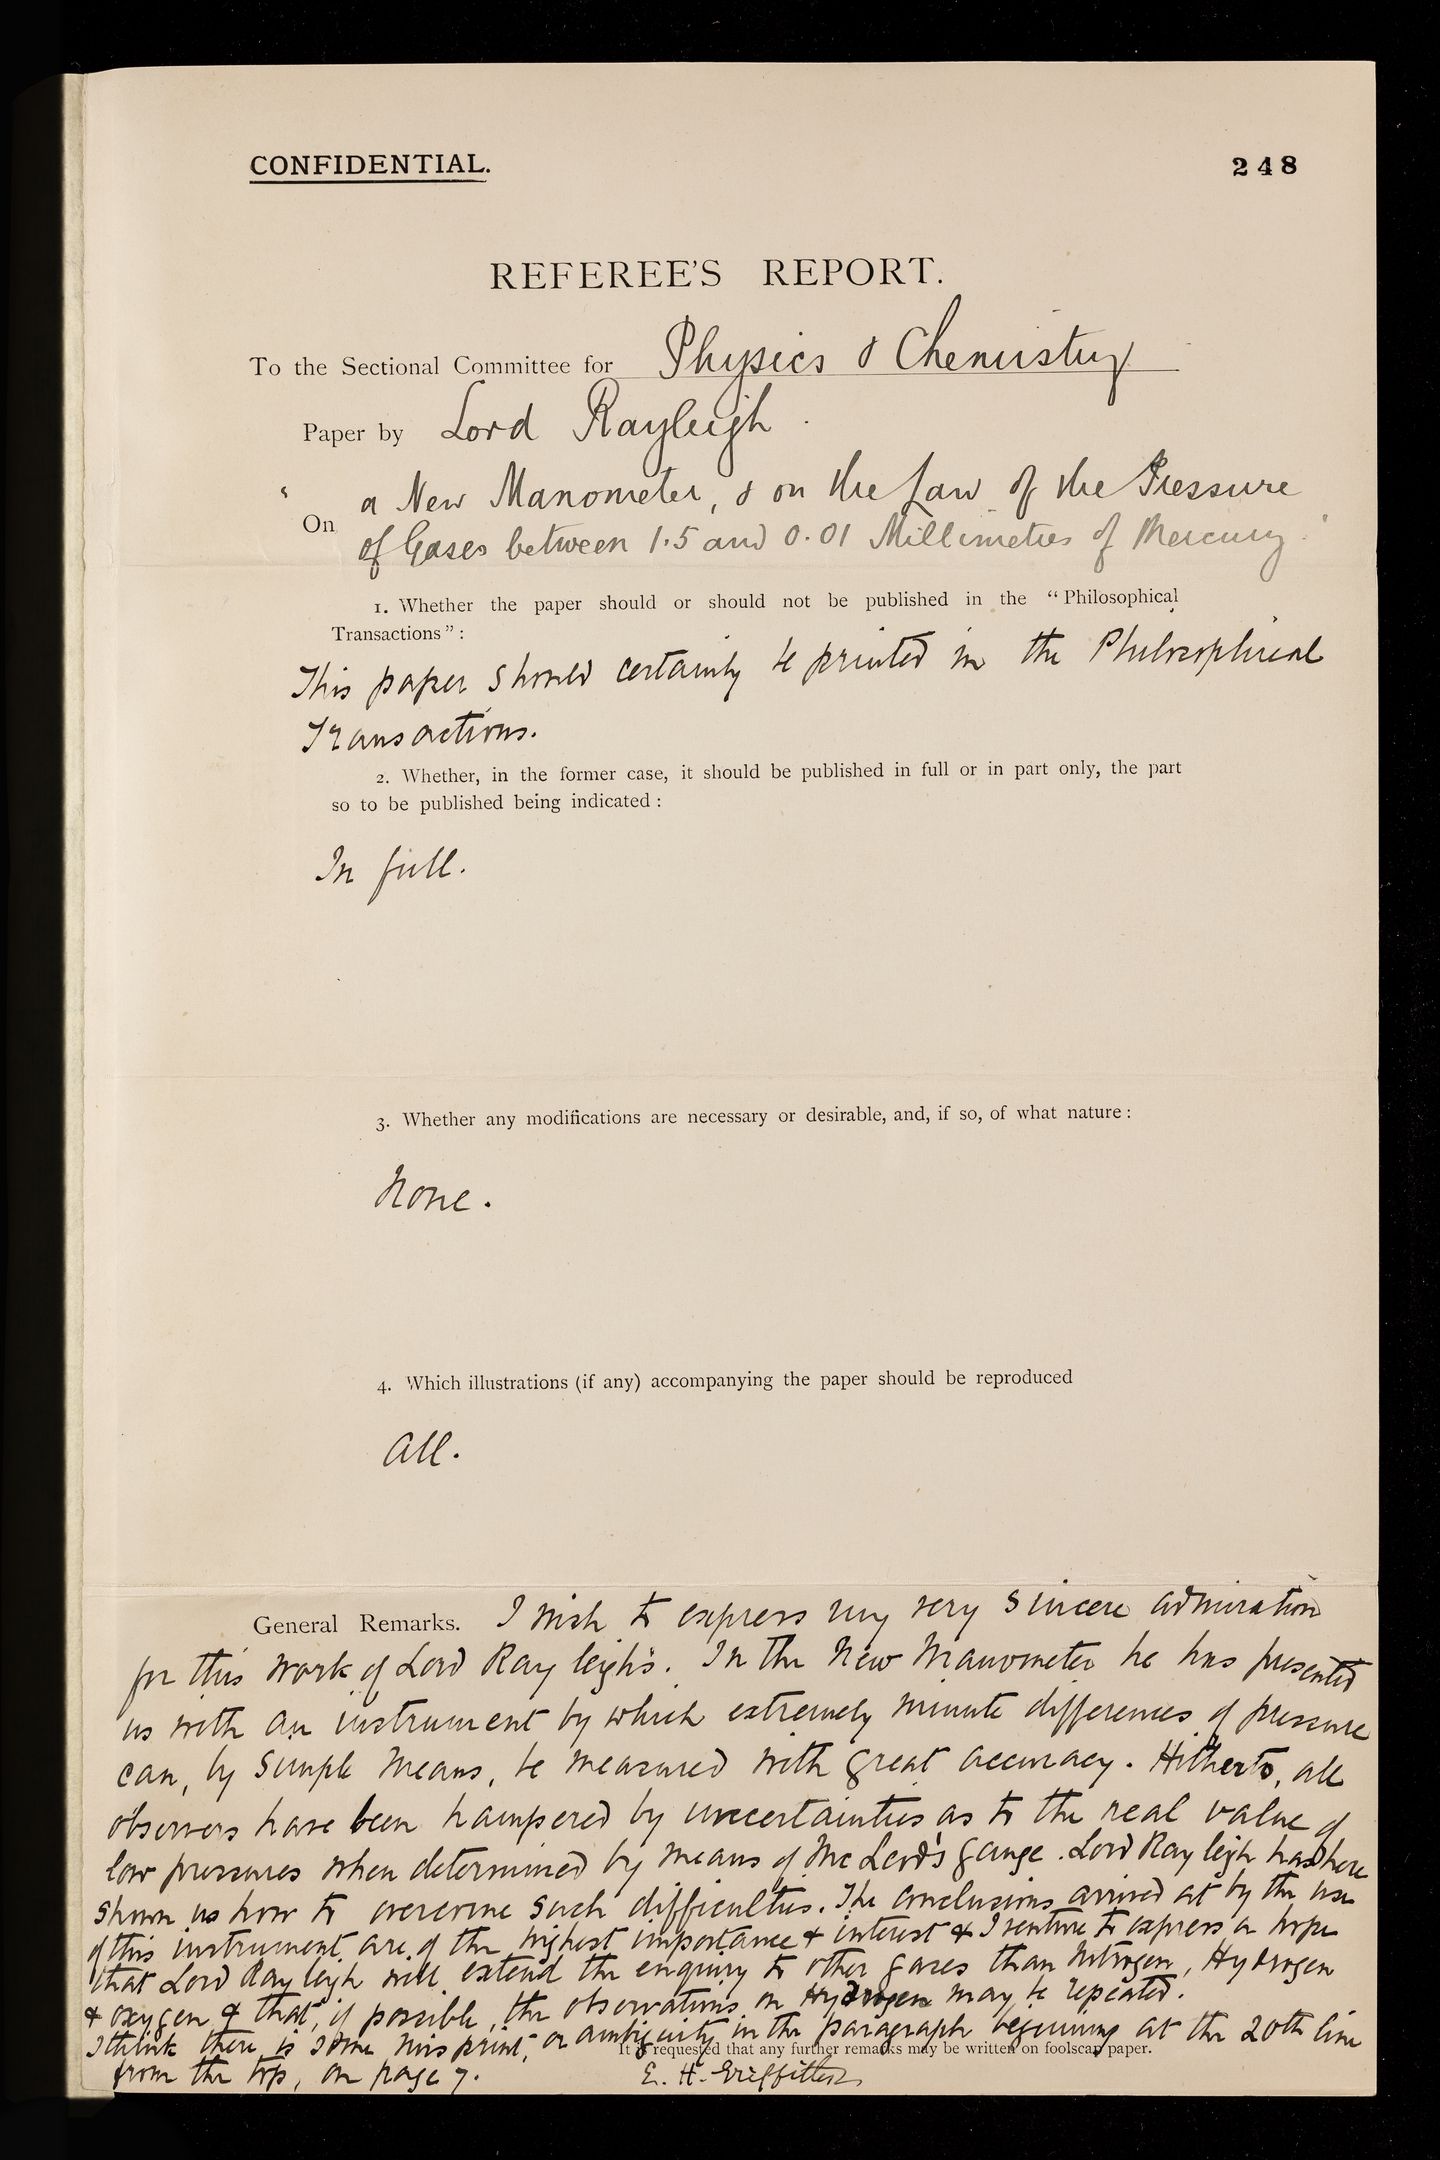 CONFIDENTIAL.
248
REFEREE'S REPORT.
To the Sectional Committee for Physics & Chemistry
Paper by Lord Rayleigh.
"a New Manometer, & on the Law of the Pressure
On
of Gases between 1.5 and 0.01 Millimetres of Mercury."
1. Whether the paper should or should not be published in the "Philosophical
Transactions":
This paper should certainly be printed in the Philosophical
Transactions.
2. Whether, in the former case, it should be published in full or in part only, the part
so to be published being indicated:
In full.
3. Whether any modifications are necessary or desirable, and, if so, of what nature:
None.
4. Which illustrations (if any) accompanying the paper should be reproduced
All.
General Remarks. I wish to express my very sincere admiration
for this work of Lord Rayleigh's. In the New Manometer he has presented
us with an instrument by which extremely minute differences of pressure
can, by simple means, be measured with great accuracy. Hitherto, all
observers have been hampered by uncertainties as to the real value of
low pressures when determined by means of McLeod's gauge. Lord Rayleigh has here
shown us how to overcome such difficulties. The conclusions arrived at by the use
of this instrument are of the highest importance & interest & I venture to express a hope
that Lord Rayleigh will extend the enquiry to other gases than Nitrogen, Hydrogen
& oxygen & that, if possible, the observations on Hydrogen may be repeated.
I think there is some misprint, or ambiguity in the paragraph beginning at the 20th line
It is requested that any further remarks may be written on foolscap paper.
from the top, on page 7.
E. H. Griffiths